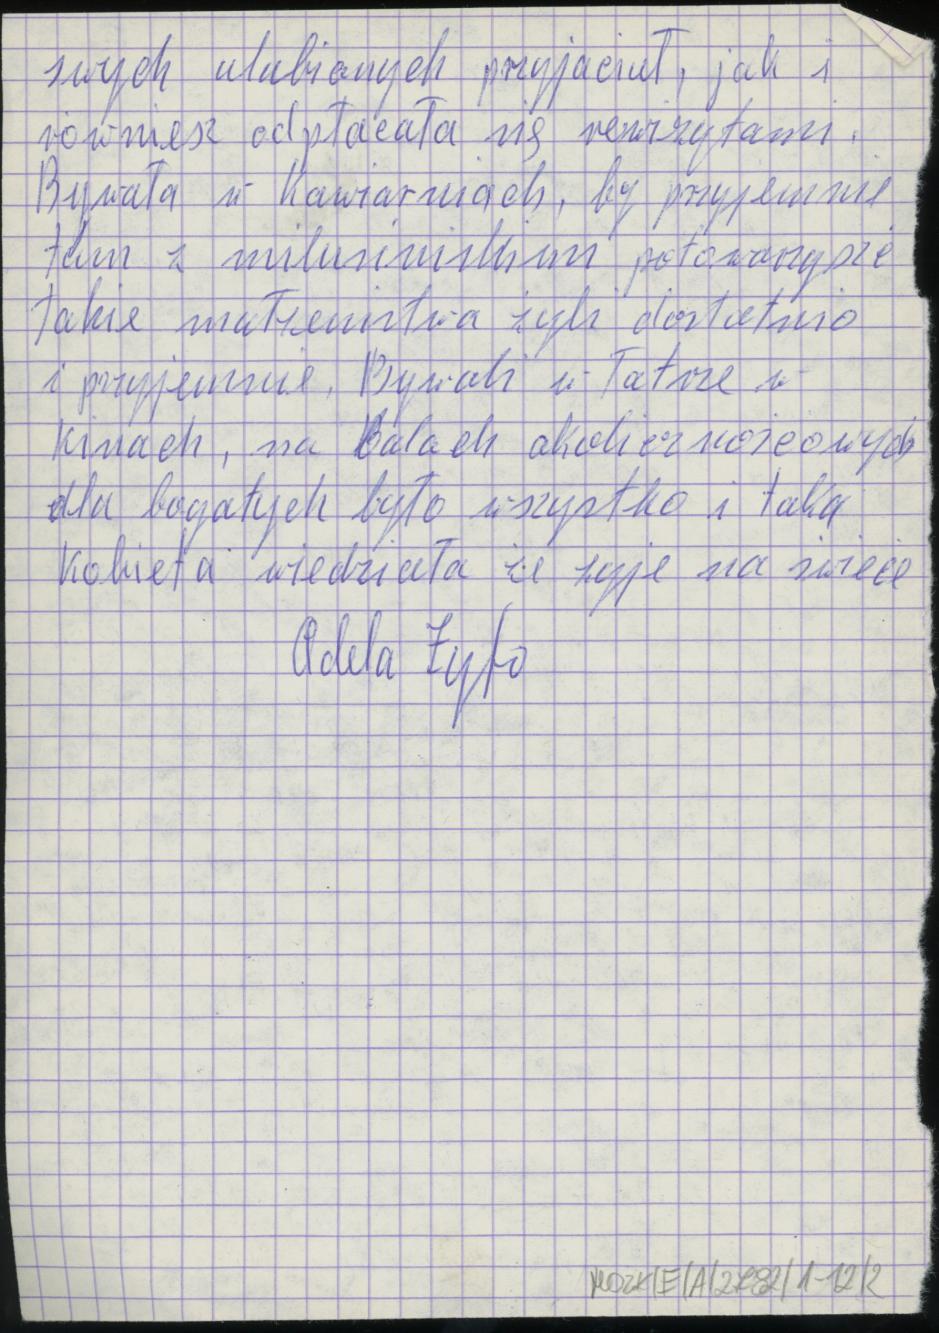 swych ulubionych przyjaciuł, jak i
równiesz odpłacała się rewizytami.
Bywała w Kawiarniach, by przyjemnie
tam z milusinskimi potowarzyszć
takie małżeństwa żyli dostatnio
i przyjemnie. Bywali w Tatrze w
Kinach, na Balach okolicznościowych
dla bogatych było wszystko i taka
Kobieta wiedziała że żyje na świecie
Adela